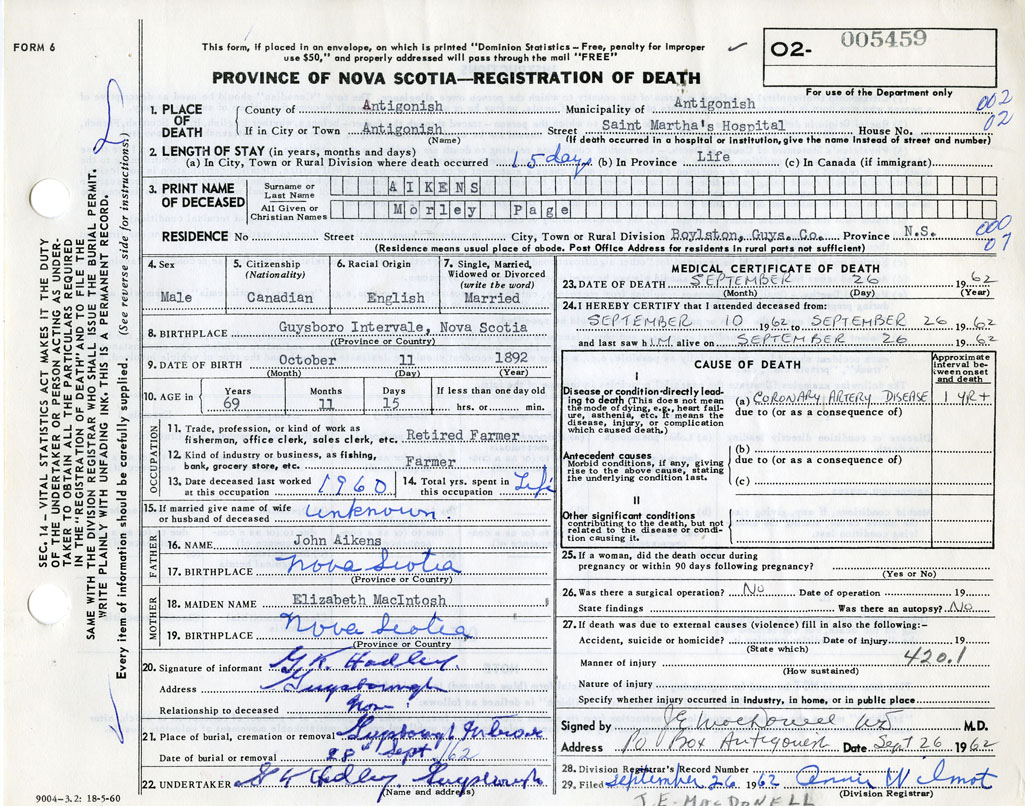 FORM 6
This form, if placed in an envelope, on which is printed "Dominion Statistics – Free, penalty for improper
use $50," and properly addressed will pass through the mail "FREE"
O2- 005459
PROVINCE OF NOVA SCOTIA—REGISTRATION OF DEATH
For use of the Department only
002
02
1. PLACE OF DEATH
County of Antigonish Municipality of Antigonish
If in City or Town Antigonish Street Saint Martha's Hospital House No.
(Name) (If death occurred in a hospital or institution, give the name instead of street and number)
2. LENGTH OF STAY (in years, months and days)
(a) In City, Town or Rural Division where death occurred 15 days (b) In Province Life (c) In Canada (if immigrant)
3. PRINT NAME OF DECEASED
Surname or Last Name AIKENS
All Given or Christian Names Morley Page
000
07
RESIDENCE No Street City, Town or Rural Division Boylston, Guys. Co. Province N.S.
(Residence means usual place of abode. Post Office Address for residents in rural parts not sufficient)
4. Sex
Male
5. Citizenship
(Nationality)
Canadian
6. Racial Origin
English
7. Single, Married, Widowed or Divorced
(write the word)
Married
8. BIRTHPLACE Guysboro Intervale, Nova Scotia
(Province or Country)
9. DATE OF BIRTH October 11 1892
(Month) (Day) (Year)
10. AGE in Years 69 Months 11 Days 15 If less than one day old hrs. or min.
OCCUPATION
11. Trade, profession, or kind of work as
fisherman, office clerk, sales clerk, etc. Retired Farmer
12. Kind of industry or business, as fishing,
bank, grocery store, etc. Farmer
13. Date deceased last worked
at this occupation 1960
14. Total yrs. spent in
this occupation Life
15. If married give name of wife
or husband of deceased unknown.
FATHER
16. NAME John Aikens
17. BIRTHPLACE Nova Scotia
(Province or Country)
MOTHER
18. MAIDEN NAME Elizabeth MacIntosh
19. BIRTHPLACE Nova Scotia
(Province or Country)
20. Signature of informant G.K. Hadley
Address Guysborough
Relationship to deceased None
21. Place of burial, cremation or removal Guysborough
Date of burial or removal 28th Sept /62
22. UNDERTAKER Hadley, Guysborough
(Name and address)
9004–3.2: 18-5-60
MEDICAL CERTIFICATE OF DEATH
23. DATE OF DEATH SEPTEMBER 26 1962
(Month) (Day) (Year)
24. I HEREBY CERTIFY that I attended deceased from:
SEPTEMBER 10 1962 to SEPTEMBER 26 1962
and last saw h.I.M. alive on SEPTEMBER 26 1962
CAUSE OF DEATH
Approximate interval between onset and death
I
Disease or condition directly leading to death (This does not mean
the mode of dying, e.g., heart failure, asthenia, etc. It means the
disease, injury, or complication
which caused death.)
(a) CORONARY ARTERY DISEASE 1 YR+
due to (or as a consequence of)
Antecedent causes
Morbid conditions, if any, giving
rise to the above cause, stating
the underlying condition last.
(b)
due to (or as a consequence of)
(c)
II
Other significant conditions
contributing to the death, but not
related to the disease or condition causing it.
25. If a woman, did the death occur during
pregnancy or within 90 days following pregnancy?
(Yes or No)
26. Was there a surgical operation? No Date of operation 19
State findings Was there an autopsy? No
27. If death was due to external causes (violence) fill in also the following:–
Accident, suicide or homicide? Date of injury 19
(State which)
420.1
Manner of injury
(How sustained)
Nature of injury
Specify whether injury occurred in industry, in home, or in public place
Signed by J E MacDonell MD M.D.
Address PO Box Antigonish Date Sept 26 1962
28. Division Registrar's Record Number
29. Filed September 26 1962 Annie Wilmot
(Division Registrar)
J.E. MACDONELL
SEC. 14 – VITAL STATISTICS ACT MAKES IT THE DUTY
OF THE UNDERTAKER OR PERSON ACTING AS UNDER-
TAKER TO OBTAIN ALL THE PARTICULARS REQUIRED
IN THE "REGISTRATION OF DEATH" AND TO FILE THE
SAME WITH THE DIVISION REGISTRAR WHO SHALL ISSUE THE BURIAL PERMIT.
WRITE PLAINLY WITH UNFADING INK. THIS IS A PERMANENT RECORD.
Every item of information should be carefully supplied. (See reverse side for instructions).